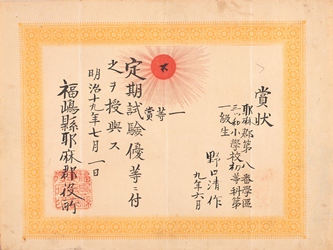 賞状
耶麻郡第八番学区
三ツ和小学校初等科第
一級生
野口清作
九年六月
一等賞
定期試験優等ニ付
之ヲ授与ス
明治十九年七月一日
福嶋縣耶麻郡役所